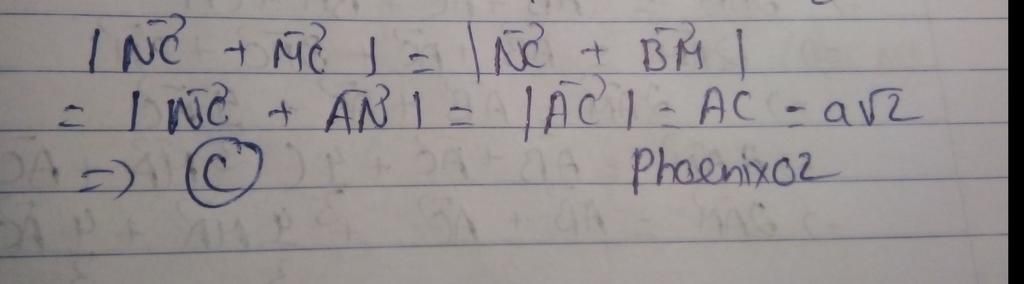 |NC⃗ + MC⃗| = |NC⃗ + BM⃗|
= |NC⃗ + AN⃗| = |AC⃗| = AC = a√2
=> C Phoenix02